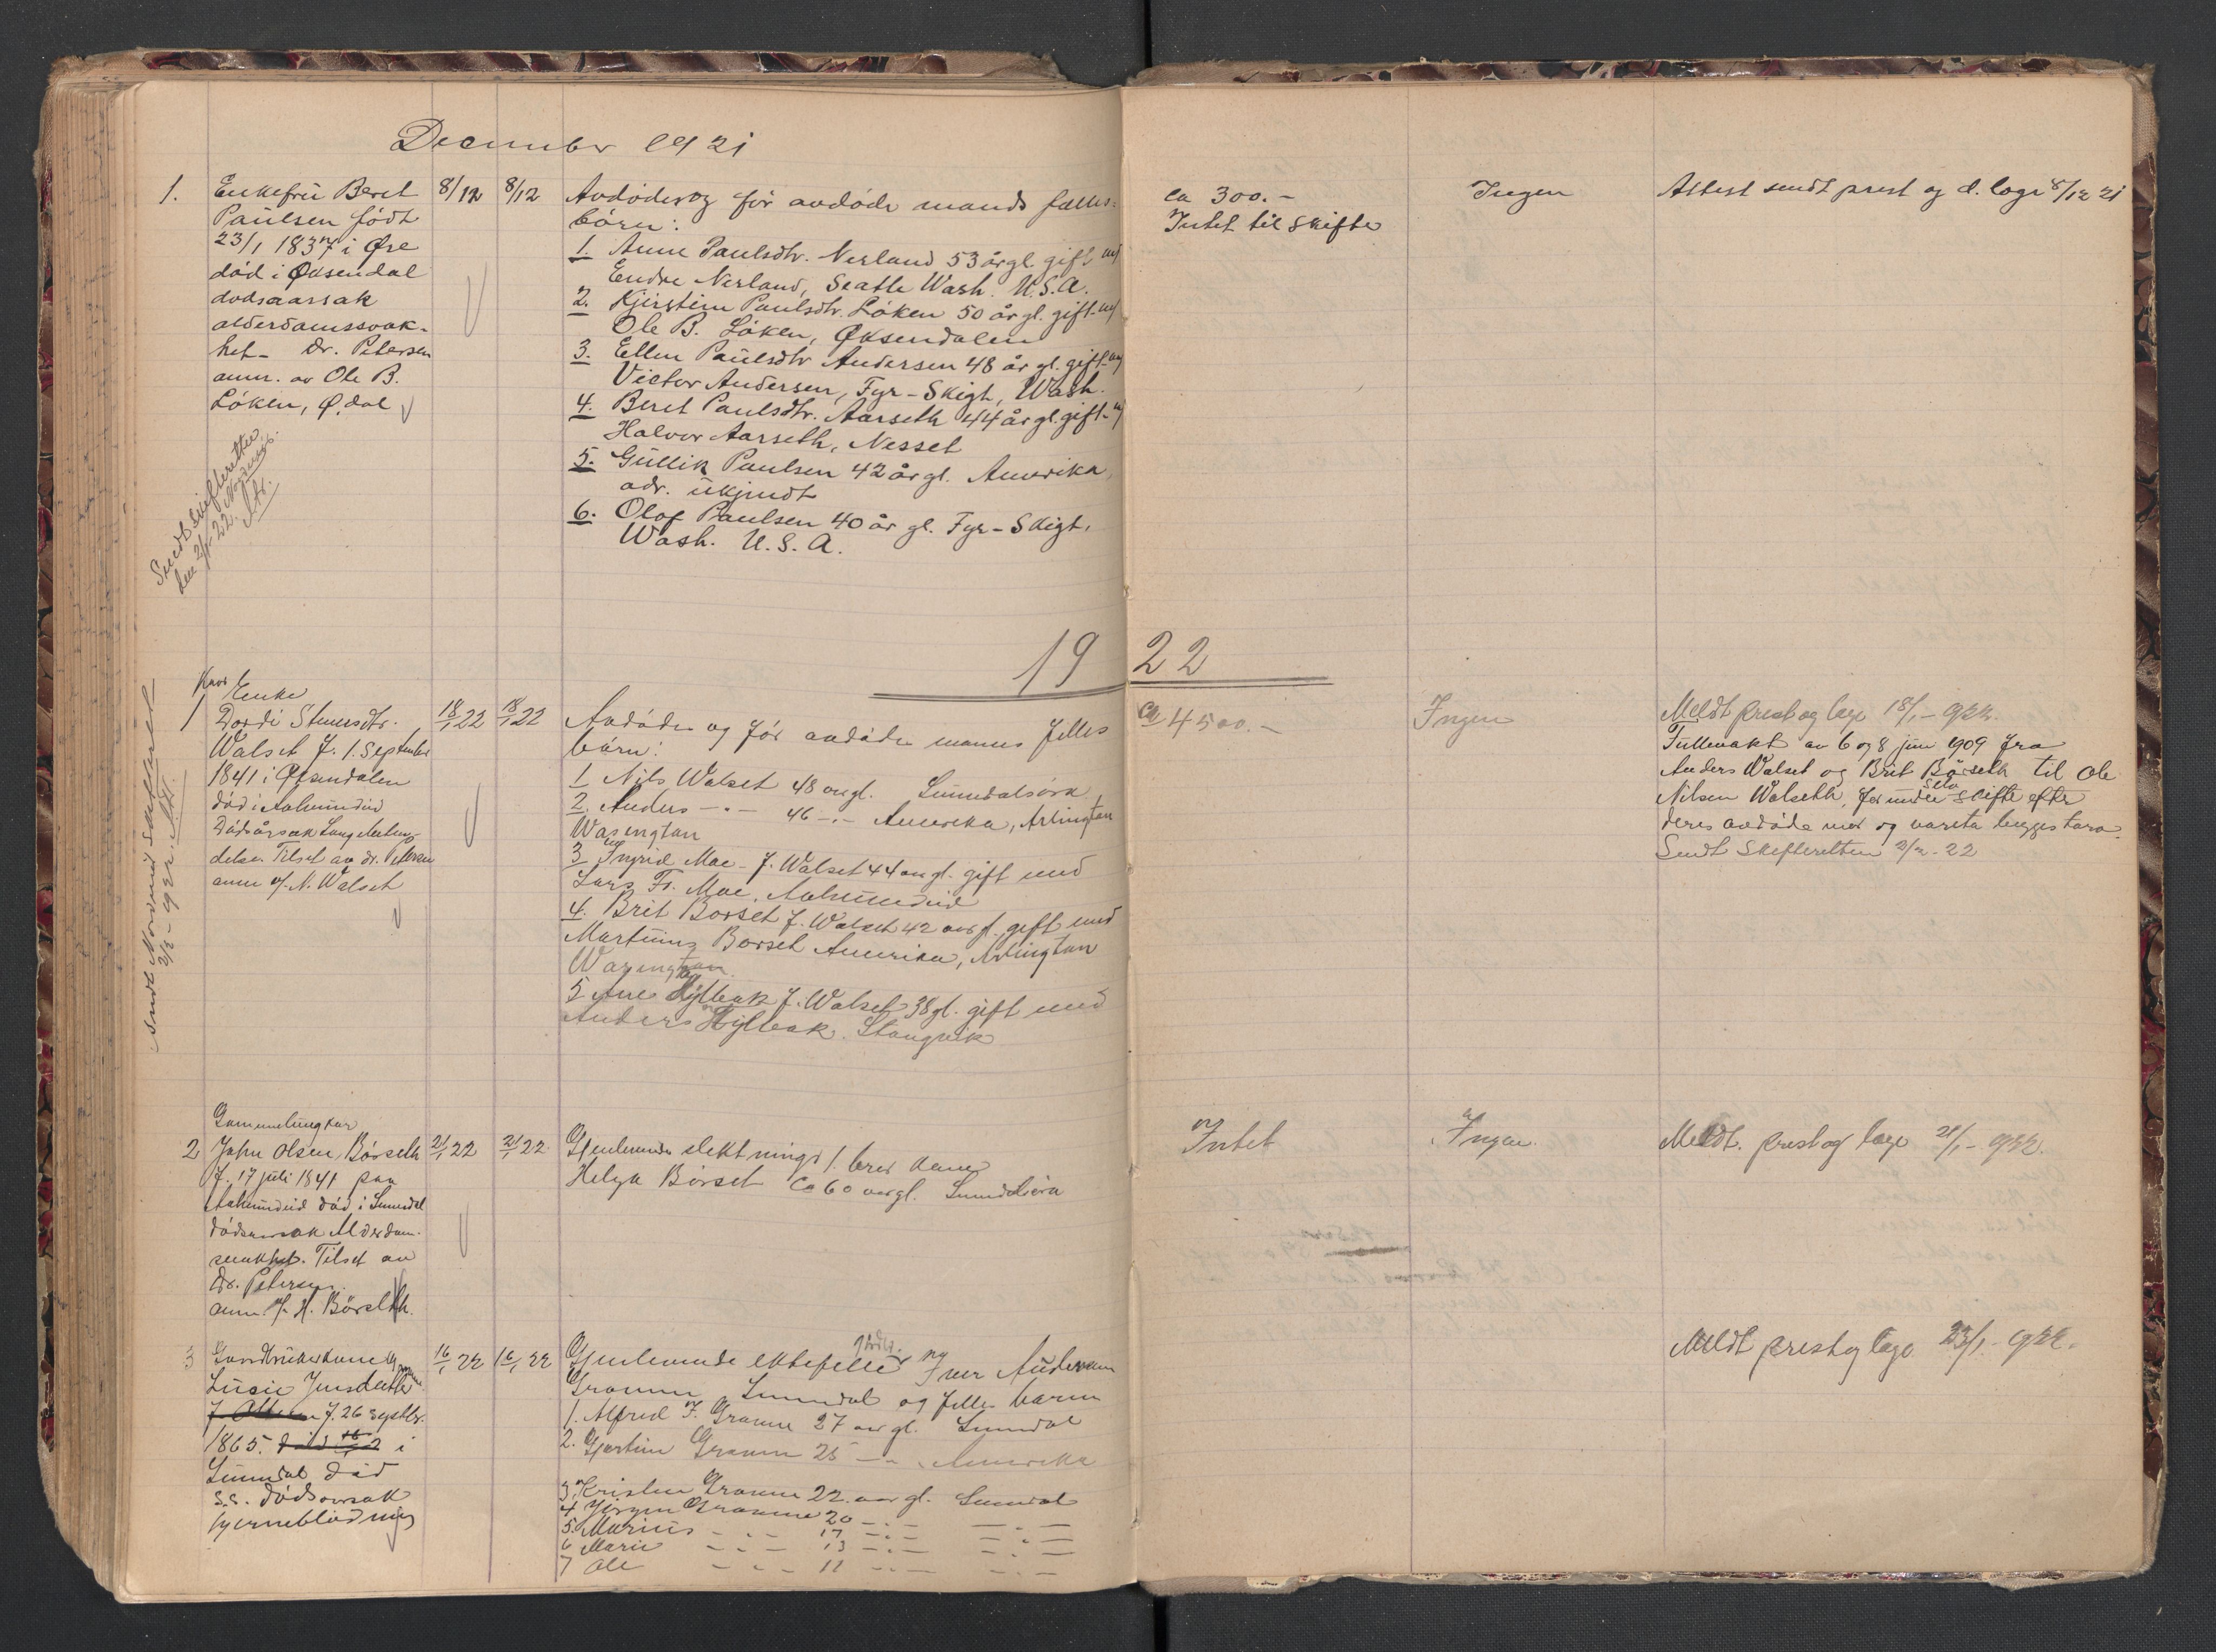 December 1921
1.
Enkefru Beret
Paulsen født
23/1 1837 i Øre
död i Øksendal
dødsaarsak
alderdomssvak-
het - Dr. Petersen
anm. av Ole B.
Löken, Ø.dal
8/12
8/12
Avdödes og för avdöde mands fælles-
börn:
1. Anne Paulsdtr. Nerland 53 årgl. gift m/
Endre Nerland, Seatle Wash. U.S.A.
2. Kjerstine Paulsdtr. Löken 50 år gl. gift m/
Ole B. Löken, Øksendalen
3. Ellen Paulsdtr Andersen 48 år gl. gift m/
Victor Andersen, Fyr-Skigh, Wash.
4. Beret Paulsdtr. Aarseth 44 år gl. gift m/
Halvor Aarseth, Nesset
5. Gullik Paulsen 42 år gl. Amerika,
adr. ukjendt
6. Olaf Paulsen 40 år gl. Fyr-Skigt,
Wash. U.S.A.
ca 300.-
Intet til skifte
Ingen
Attest sendt prest og d. læge 8/12 21
Sendt skifteretten
den 2/1-22. Nordmøre
1922
1
Enke
Dordi Steinersdtr.
Walset f. 1. September
1841 i Øksendalen
död i Aalvundeid
Dödsårsak Lungebetæn-
delse. Tilset av dr. Petersen
anm. v/ N. Walset
18/1 22
18/1 22
Avdöde og för avdöde manns felles
börn:
1 Nils Walset 48 aar gl. Sunndalsöra
2. Anders -"- 46 -"- Amerika, Arlington
Wasington
3 Ingrid Moe - f. Walset 44 aar gl. gift med
Lars Fr. Moe, Aalvundeid
4. Brit Borset f. Walset 42 aar gl. gift med
Martinus Borset Amerika, Arlington
Wasington.
5 Ane Hylbak f. Walset 38 gl. gift med
Anders Hylbak. Stangvik
ca 4500.-
Ingen
Meldt prest og læge 18/1-922.
Fullmakt av 6 og 8 juni 1909 fra
Anders Walset og Brit Börseth til Ole
Nilsen Walseth, for under selv skifte efter
deres avdöde mor og vareta begges tarv.
Sendt Skifteretten 2/2-22
Sendt Nordmöre skifteret
2/2-922.
2
Gammelungkar
John Olsen Börseth
f. 17 juli 1841 paa
Aalvundeid död i Sunndal
dödsaarsak Alderdom-
svakhet. Tilset av
Dr. Petersen.
anm. v/ H. Börseth.
21/1 22
21/1 22
Gjenlevende slektninger 1. bror
Helge Börset ca 60 aar gl. Sunndalsöra
Intet
Ingen.
Meldt. prest og læge 21/1-922.
3
Gaardbrukerkone
Lucie Jensdatter
f. 26 septbr.
1865. i
Sunndal död
s.s. dödsaarsak
hjerneblödning
16/1 22
16/1 22
Gjenlevende ektefelle Iver Andersen
Gramm Sunndal og felles barn
1. Alfred I. Gramm 27 aar gl. Sunndal
2. Gjertine Gramm 25 -"- Amerika
3. Kristen Gramm 22 aar gl. Sunndal
4 Jörgen Gramm 20 -"- -"-
5. Marius -"- 17 -"- -"-
6 Marie -"- 13 -"- -"-
7 Ole -"- 11 -"- -"-
Meldt prest og læge 23/1-922.